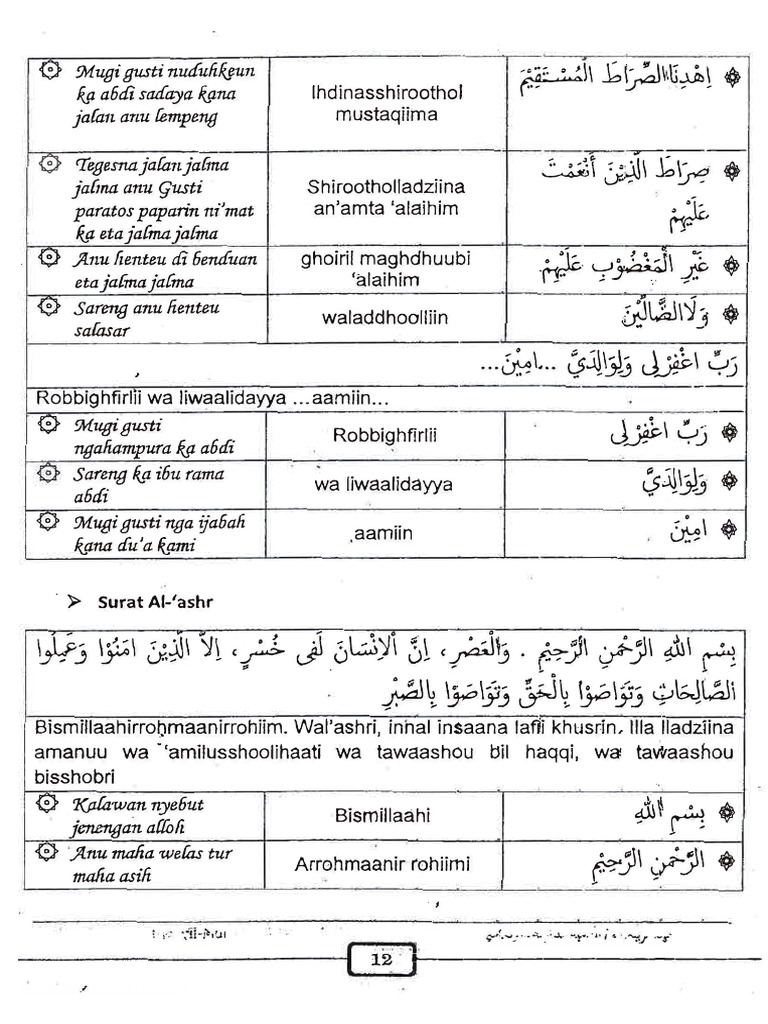 Mugi gusti nuduhkeun
ka abdi sadaya kana
jalan anu lempeng
Ihdinasshiroothol
mustaqiima
اِهْدِنَا الصِّرَاطَ الْمُسْتَقِيْمَ
Tegesna jalan jalma
jalma anu Gusti
paratos paparin ni'mat
ka eta jalma jalma
Shirootholladziina
an'amta 'alaihim
صِرَاطَ الَّذِيْنَ أَنْعَمْتَ
عَلَيْهِمْ
Anu henteu di benduan
eta jalma jalma
ghoiril maghdhuubi
'alaihim
غَيْرِ الْمَغْضُوْبِ عَلَيْهِمْ
Sareng anu henteu
salasar
waladdhoolliin
وَلَا الضَّالِّيْنَ
رَبِّ اغْفِرْ لِى وَلِوَالِدَيَّ ...امِيْنَ...
Robbighfirlii wa liwaalidayya ...aamiin...
Mugi gusti
ngahampura ka abdi
Robbighfirlii
رَبِّ اغْفِرْ لِى
Sareng ka ibu rama
abdi
wa liwaalidayya
وَلِوَالِدَيَّ
Mugi gusti nga ijabah
kana du'a kami
aamiin
امِيْنَ
➢ Surat Al-'ashr
بِسْمِ اللهِ الرَّحْمنِ الرَّحِيْمِ . وَالْعَصْرِ، اِنَّ الْاِنْسَانَ لَفِى خُسْرٍ، اِلاَّ الَّذِيْنَ امَنُوْا وَعَمِلُوا
الصَّالِحَاتِ وَتَوَاصَوْا بِالْحَقِّ وَتَوَاصَوْا بِالصَّبْرِ
Bismillaahirrohmaanirrohiim. Wal'ashri, innal insaana lafii khusrin, Illa lladziina
amanuu wa 'amilusshoolihaati wa tawaashou bil haqqi, wa tawaashou
bisshobri
Kalawan nyebut
jenengan alloh
Bismillaahi
بِسْمِ اللهِ
Anu maha welas tur
maha asih
Arrohmaanir rohiimi
الرَّحْمنِ الرَّحِيْمِ
12